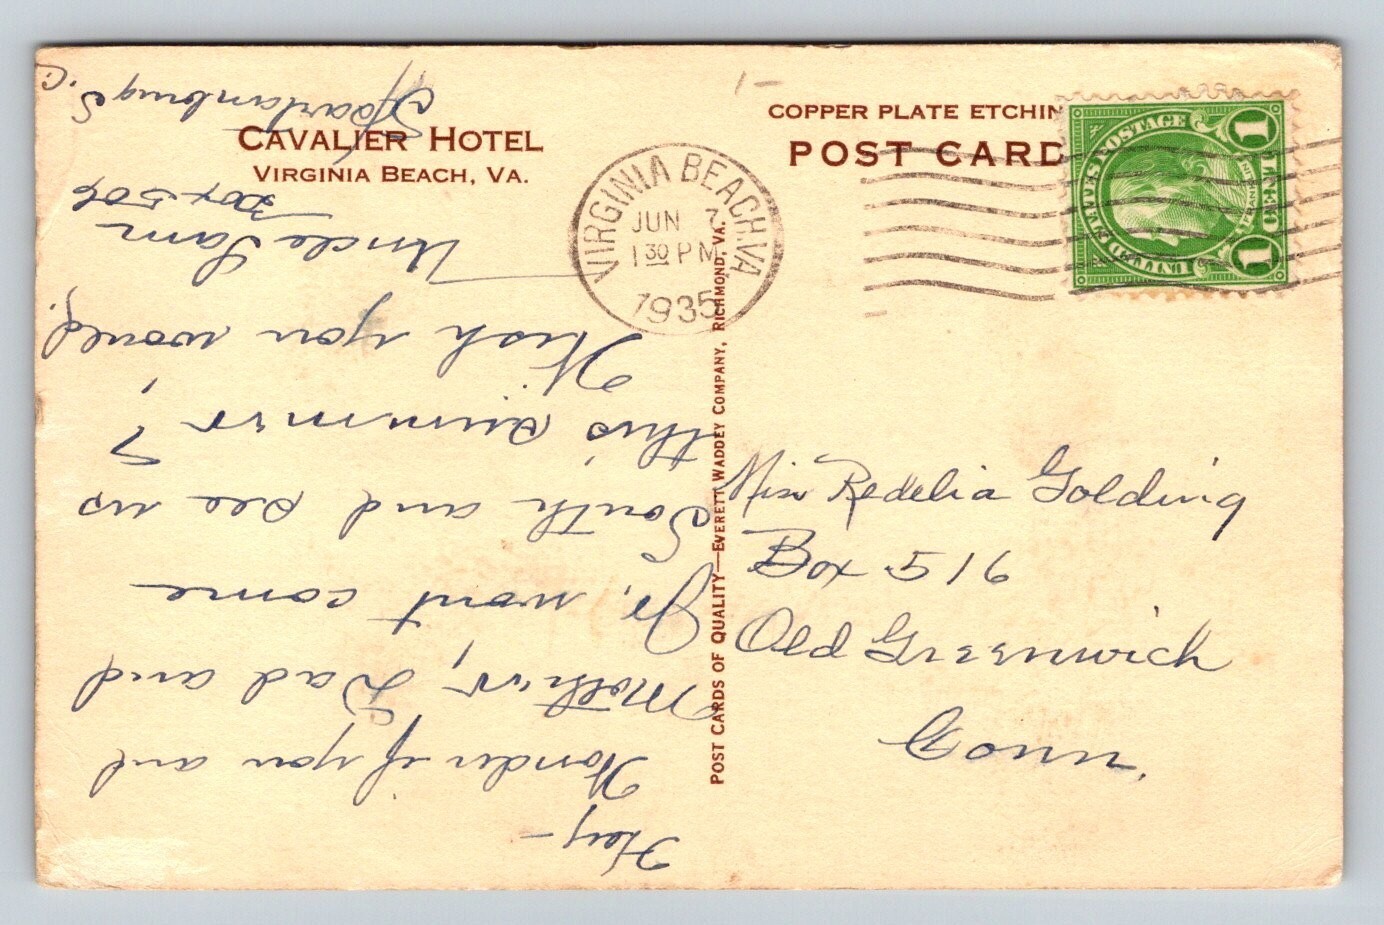 CAVALIER HOTEL
VIRGINIA BEACH, VA.
COPPER PLATE ETCHIN
POST CARD
VIRGINIA BEACH, VA.
JUN 7
1 30 PM
1935
UNITED STATES POSTAGE
FRANKLIN
1 CENT 1
POST CARDS OF QUALITY—EVERETT WADDEY COMPANY, RICHMOND, VA.
Miss Redelia Golding
Box 516
Old Greenwich
Conn.
Hey—
Wonder if you and
Mother, Dad and
Jr. wont come
South and see us
this summer?
Wish you would.
Uncle Sam
Box 506
Spartanburg S.C.